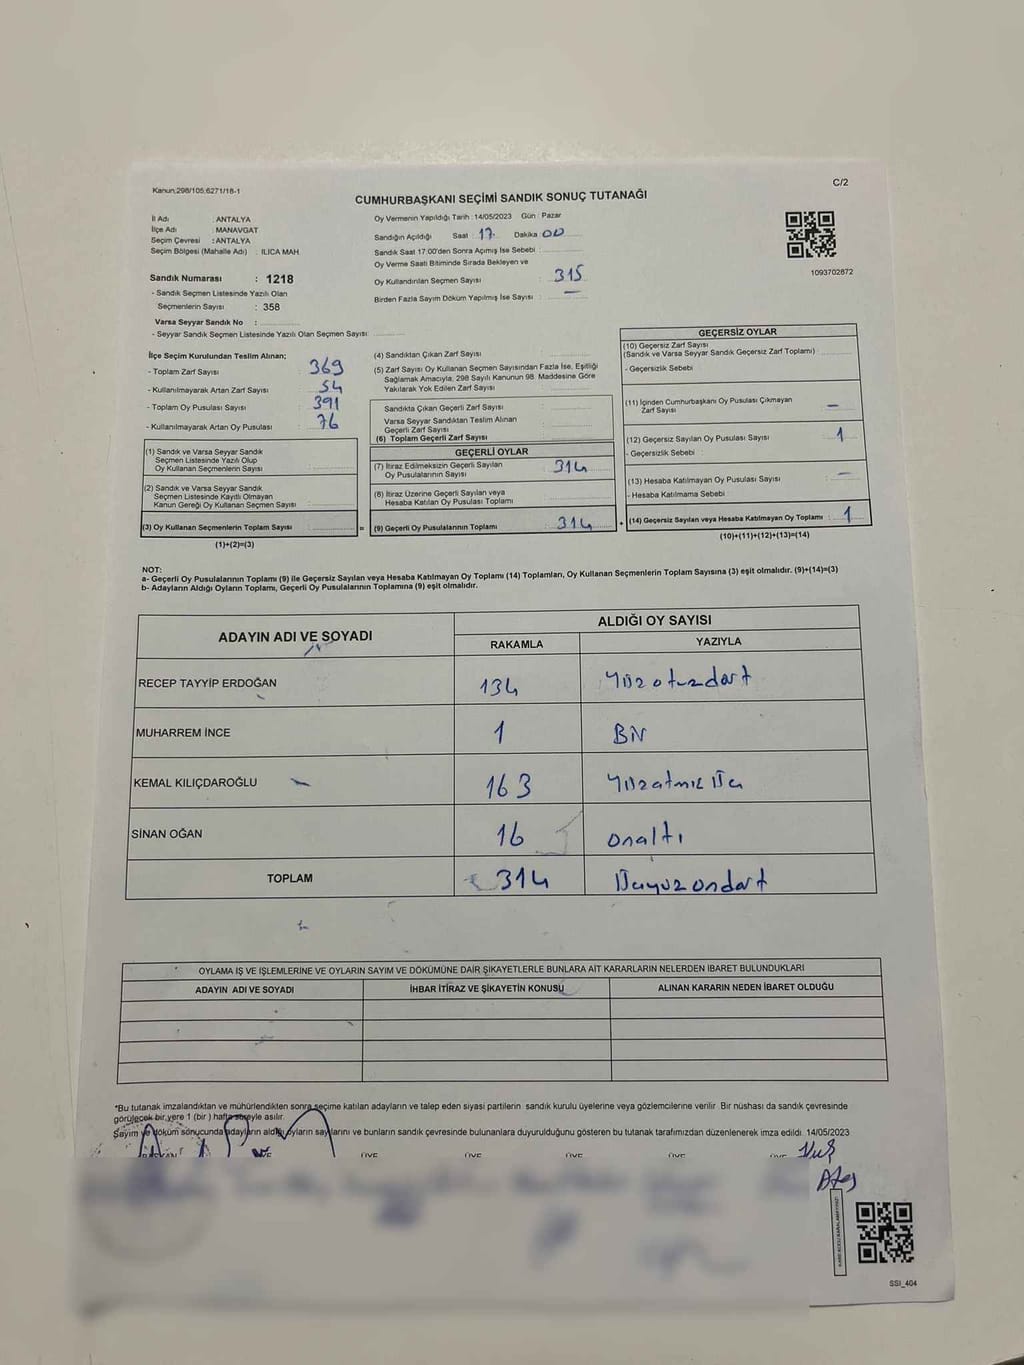 Kanun;298/105,6271/18-1
C/2
CUMHURBAŞKANI SEÇİMİ SANDIK SONUÇ TUTANAĞI
İl Adı : ANTALYA
İlçe Adı : MANAVGAT
Seçim Çevresi : ANTALYA
Seçim Bölgesi (Mahalle Adı) : ILICA MAH
Sandık Numarası : 1218
- Sandık Seçmen Listesinde Yazılı Olan
Seçmenlerin Sayısı : 358
Varsa Seyyar Sandık No :
- Seyyar Sandık Seçmen Listesinde Yazılı Olan Seçmen Sayısı
Oy Vermenin Yapıldığı Tarih : 14/05/2023 Gün : Pazar
Sandığın Açıldığı Saat : 17 Dakika : 00
Sandık Saat 17:00'den Sonra Açımış İse Sebebi :
Oy Verme Saati Bitiminde Sırada Bekleyen ve
Oy Kullandırılan Seçmen Sayısı : 315
Birden Fazla Sayım Döküm Yapılmış İse Sayısı : —
1093702872
İlçe Seçim Kurulundan Teslim Alınan;
- Toplam Zarf Sayısı : 369
- Kullanılmayarak Artan Zarf Sayısı : 54
- Toplam Oy Pusulası Sayısı : 391
- Kullanılmayarak Artan Oy Pusulası : 76
(1) Sandık ve Varsa Seyyar Sandık
Seçmen Listesinde Yazılı Olup
Oy Kullanan Seçmenlerin Sayısı
(2) Sandık ve Varsa Seyyar Sandık
Seçmen Listesinde Kayıtlı Olmayan
Kanun Gereği Oy Kullanan Seçmen Sayısı
(3) Oy Kullanan Seçmenlerin Toplam Sayısı
(1)+(2)=(3)
(4) Sandıktan Çıkan Zarf Sayısı
(5) Zarf Sayısı Oy Kullanan Seçmen Sayısından Fazla İse, Eşitliği
Sağlamak Amacıyla, 298 Sayılı Kanunun 98. Maddesine Göre
Yakılarak Yok Edilen Zarf Sayısı
Sandıkta Çıkan Geçerli Zarf Sayısı
Varsa Seyyar Sandıktan Teslim Alınan
Geçerli Zarf Sayısı
(6) Toplam Geçerli Zarf Sayısı
GEÇERLİ OYLAR
(7) İtiraz Edilmeksizin Geçerli Sayılan
Oy Pusulalarının Sayısı : 314
(8) İtiraz Üzerine Geçerli Sayılan veya
Hesaba Katılan Oy Pusulası Toplamı
= (9) Geçerli Oy Pusulalarının Toplamı : 314
GEÇERSİZ OYLAR
(10) Geçersiz Zarf Sayısı
(Sandık ve Varsa Seyyar Sandık Geçersiz Zarf Toplamı)
- Geçersizlik Sebebi
(11) İçinden Cumhurbaşkanı Oy Pusulası Çıkmayan
Zarf Sayısı —
(12) Geçersiz Sayılan Oy Pusulası Sayısı 1
- Geçersizlik Sebebi :
(13) Hesaba Katılmayan Oy Pusulası Sayısı —
- Hesaba Katılmama Sebebi
+ (14) Geçersiz Sayılan veya Hesaba Katılmayan Oy Toplamı : 1
(10)+(11)+(12)+(13)=(14)
NOT:
a- Geçerli Oy Pusulalarının Toplamı (9) ile Geçersiz Sayılan veya Hesaba Katılmayan Oy Toplamı (14) Toplamları, Oy Kullanan Seçmenlerin Toplam Sayısına (3) eşit olmalıdır. (9)+(14)=(3)
b- Adayların Aldığı Oyların Toplamı, Geçerli Oy Pusulalarının Toplamına (9) eşit olmalıdır.
ADAYIN ADI VE SOYADI
ALDIĞI OY SAYISI
RAKAMLA YAZIYLA
RECEP TAYYİP ERDOĞAN 134 Yüzotuzdört
MUHARREM İNCE 1 Bir
KEMAL KILIÇDAROĞLU 163 Yüzatmış Üç
SİNAN OĞAN 16 onaltı
TOPLAM 314 Üçyüz ondört
OYLAMA İŞ VE İŞLEMLERİNE VE OYLARIN SAYIM VE DÖKÜMÜNE DAİR ŞİKAYETLERLE BUNLARA AİT KARARLARIN NELERDEN İBARET BULUNDUKLARI
ADAYIN ADI VE SOYADI İHBAR İTİRAZ VE ŞİKAYETİN KONUSU ALINAN KARARIN NEDEN İBARET OLDUĞU
*Bu tutanak imzalandıktan ve mühürlendikten sonra seçime katılan adayların ve talep eden siyasi partilerin sandık kurulu üyelerine veya gözlemcilerine verilir. Bir nüshası da sandık çevresinde
görülecek bir yere 1 (bir ) hafta süreyle asılır.
Sayım ve döküm sonucunda adayların aldığı oyların sayılarını ve bunların sandık çevresinde bulunanlara duyurulduğunu gösteren bu tutanak tarafımızdan düzenlenerek imza edildi. 14/05/2023
BAŞKAN ÜYE ÜYE ÜYE ÜYE ÜYE
SSİ_404